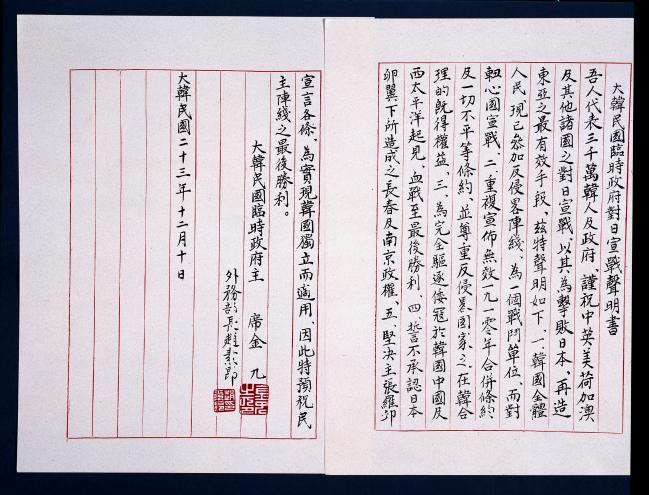 大韓民國臨時政府對日宣戰聲明書
吾人代表三千萬韓人及政府、謹祝中英美荷加澳
及其他諸國之對日宣戰、以其為擊敗日本、再造
東亞之最有效手段、玆特聲明如下、一、韓國全體
人民、現已參加反侵畧陣綫、為一個戰鬥單位、而對
軸心國宣戰、二、重複宣佈無效一九一零年合併條約
及一切不平等條約、並尊重反侵畧國家之、在韓合
理的既得權益、三、為完全驅逐倭寇於韓國中國及
西太平洋起見、血戰至最後勝利、四、誓不承認日本
卵翼下所造成之長春及南京政權、五、堅決主張羅邱
宣言各條、為實現韓國獨立而適用、因此特預祝民
主陣綫之最後勝利。
大韓民國臨時政府主 席 金 九
外務部長趙素昻
大韓民國二十三年十二月十日